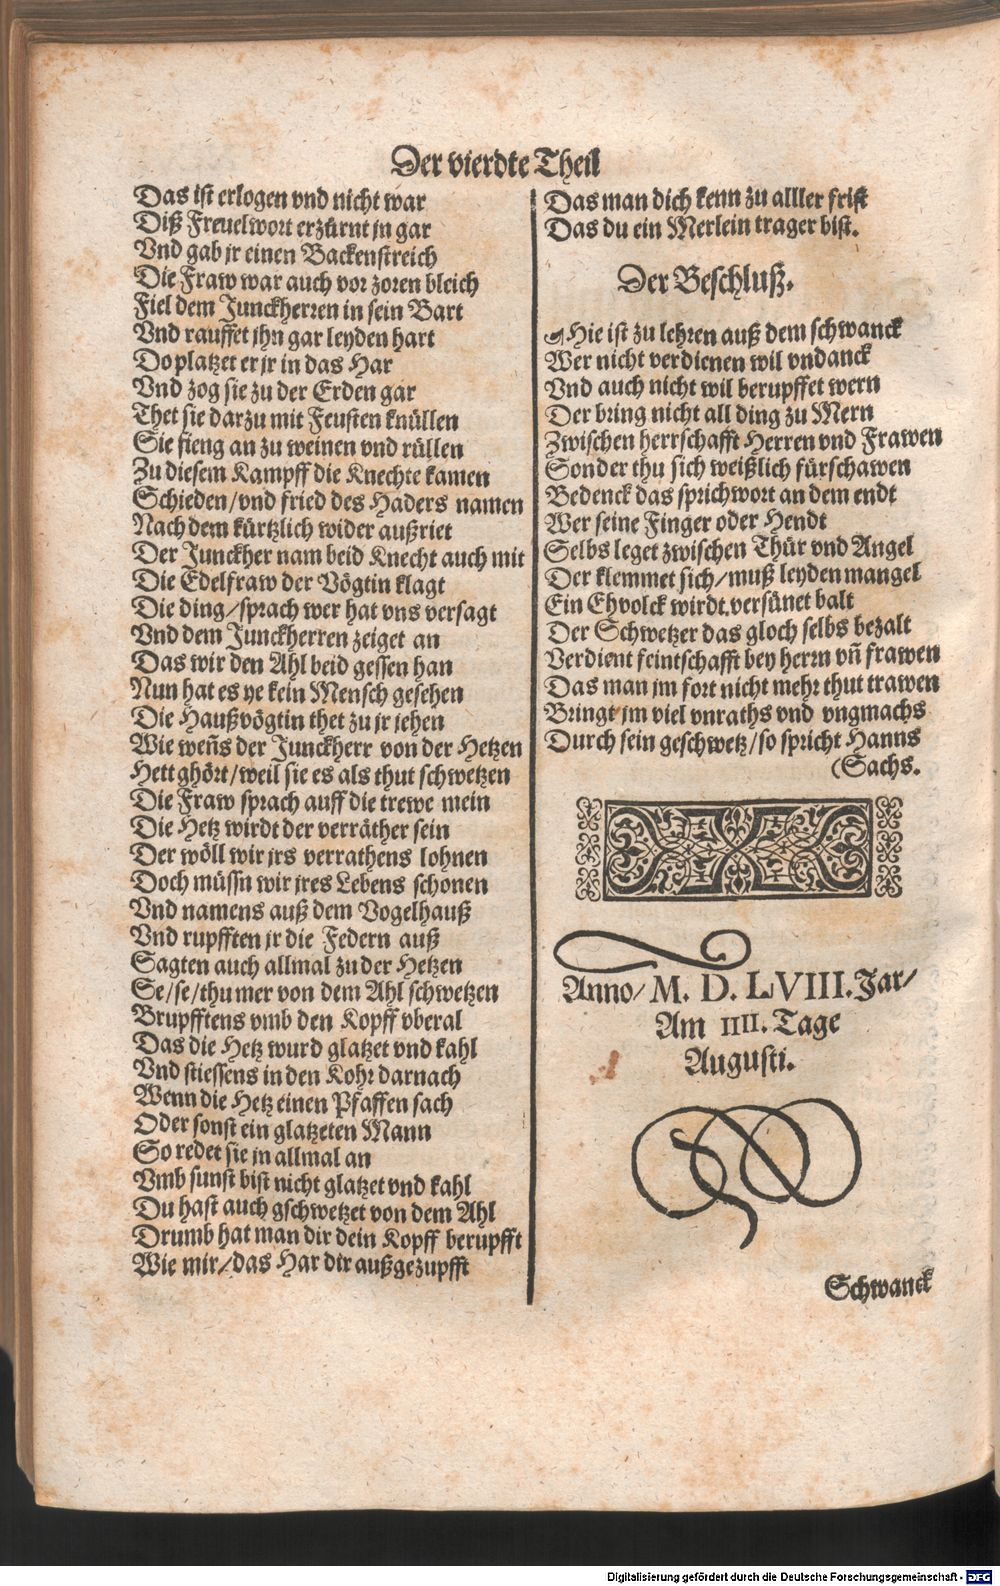 Der vierdte Theil
Das ist erlogen vnd nicht war
Diß Freuelwort erzürnt jn gar
Vnd gab jr einen Backenstreich
Die Fraw war auch vor zoren bleich
Fiel dem Junckherren in sein Bart
Vnd rauffet jhn gar leyden hart
Do platzet er jr in das Har
Vnd zog sie zu der Erden gar
Thet sie darzu mit Feusten knüllen
Sie fieng an zu weinen vnd rüllen
Zu diesem Kampff die Knechte kamen
Schieden/vnd fried des Haders namen
Nach dem kürtzlich wider außriet
Der Junckher nam beid Knecht auch mit
Die Edelfraw der Vögtin klagt
Die ding/sprach wer hat vns versagt
Vnd dem Junckherren zeiget an
Das wir den Ahl beid gessen han
Nun hat es ye kein Mensch gesehen
Die Haußvögtin thet zu jr jehen
Wie weñs der Junckherr von der Hetzen
Hett ghört/weil sie es als thut schwetzen
Die Fraw sprach auff die trewe mein
Die Hetz wirdt der verräther sein
Der wöll wir jrs verrathens lohnen
Doch müssn wir jres Lebens schonen
Vnd namens auß dem Vogelhauß
Vnd rupfften jr die Federn auß
Sagten auch allmal zu der Hetzen
Se/se/thu mer von dem Ahl schwetzen
Brupfftens vmb den Kopff vberal
Das die Hetz wurd glatzet vnd kahl
Vnd stiessens in den Kohr darnach
Wenn die Hetz einen Pfaffen sach
Oder sonst ein glatzeten Mann
So redet sie jn allmal an
Vmb sunst bist nicht glatzet vnd kahl
Du hast auch gschwetzet von dem Ahl
Drumb hat man dir dein Kopff berupfft
Wie mir/das Har dir außgezupfft
Das man dich kenn zu alller frist
Das du ein Merlein trager bist.
Der Beschluß.
Hie ist zu lehren auß dem schwanck
Wer nicht verdienen wil vndanck
Vnd auch nicht wil berupffet wern
Der bring nicht all ding zu Mern
Zwischen herrschafft Herren vnd Frawen
Sonder thu sich weißlich fürschawen
Bedenck das sprichwort an dem endt
Wer seine Finger oder Hendt
Selbs leget zwischen Thür vnd Angel
Der klemmet sich/muß leyden mangel
Ein Ehvolck wirdt versünet balt
Der Schwetzer das gloch selbs bezalt
Verdient feintschafft bey herrn vñ frawen
Das man jm fort nicht mehr thut trawen
Bringt jm viel vnraths vnd vngmachs
Durch sein geschwetz/so spricht Hanns
(Sachs.
Anno/ M. D. LVIII. Jar/
Am IIII. Tage
Augusti.
Schwanck
Digitalisierung gefördert durch die Deutsche Forschungsgemeinschaft - DFG